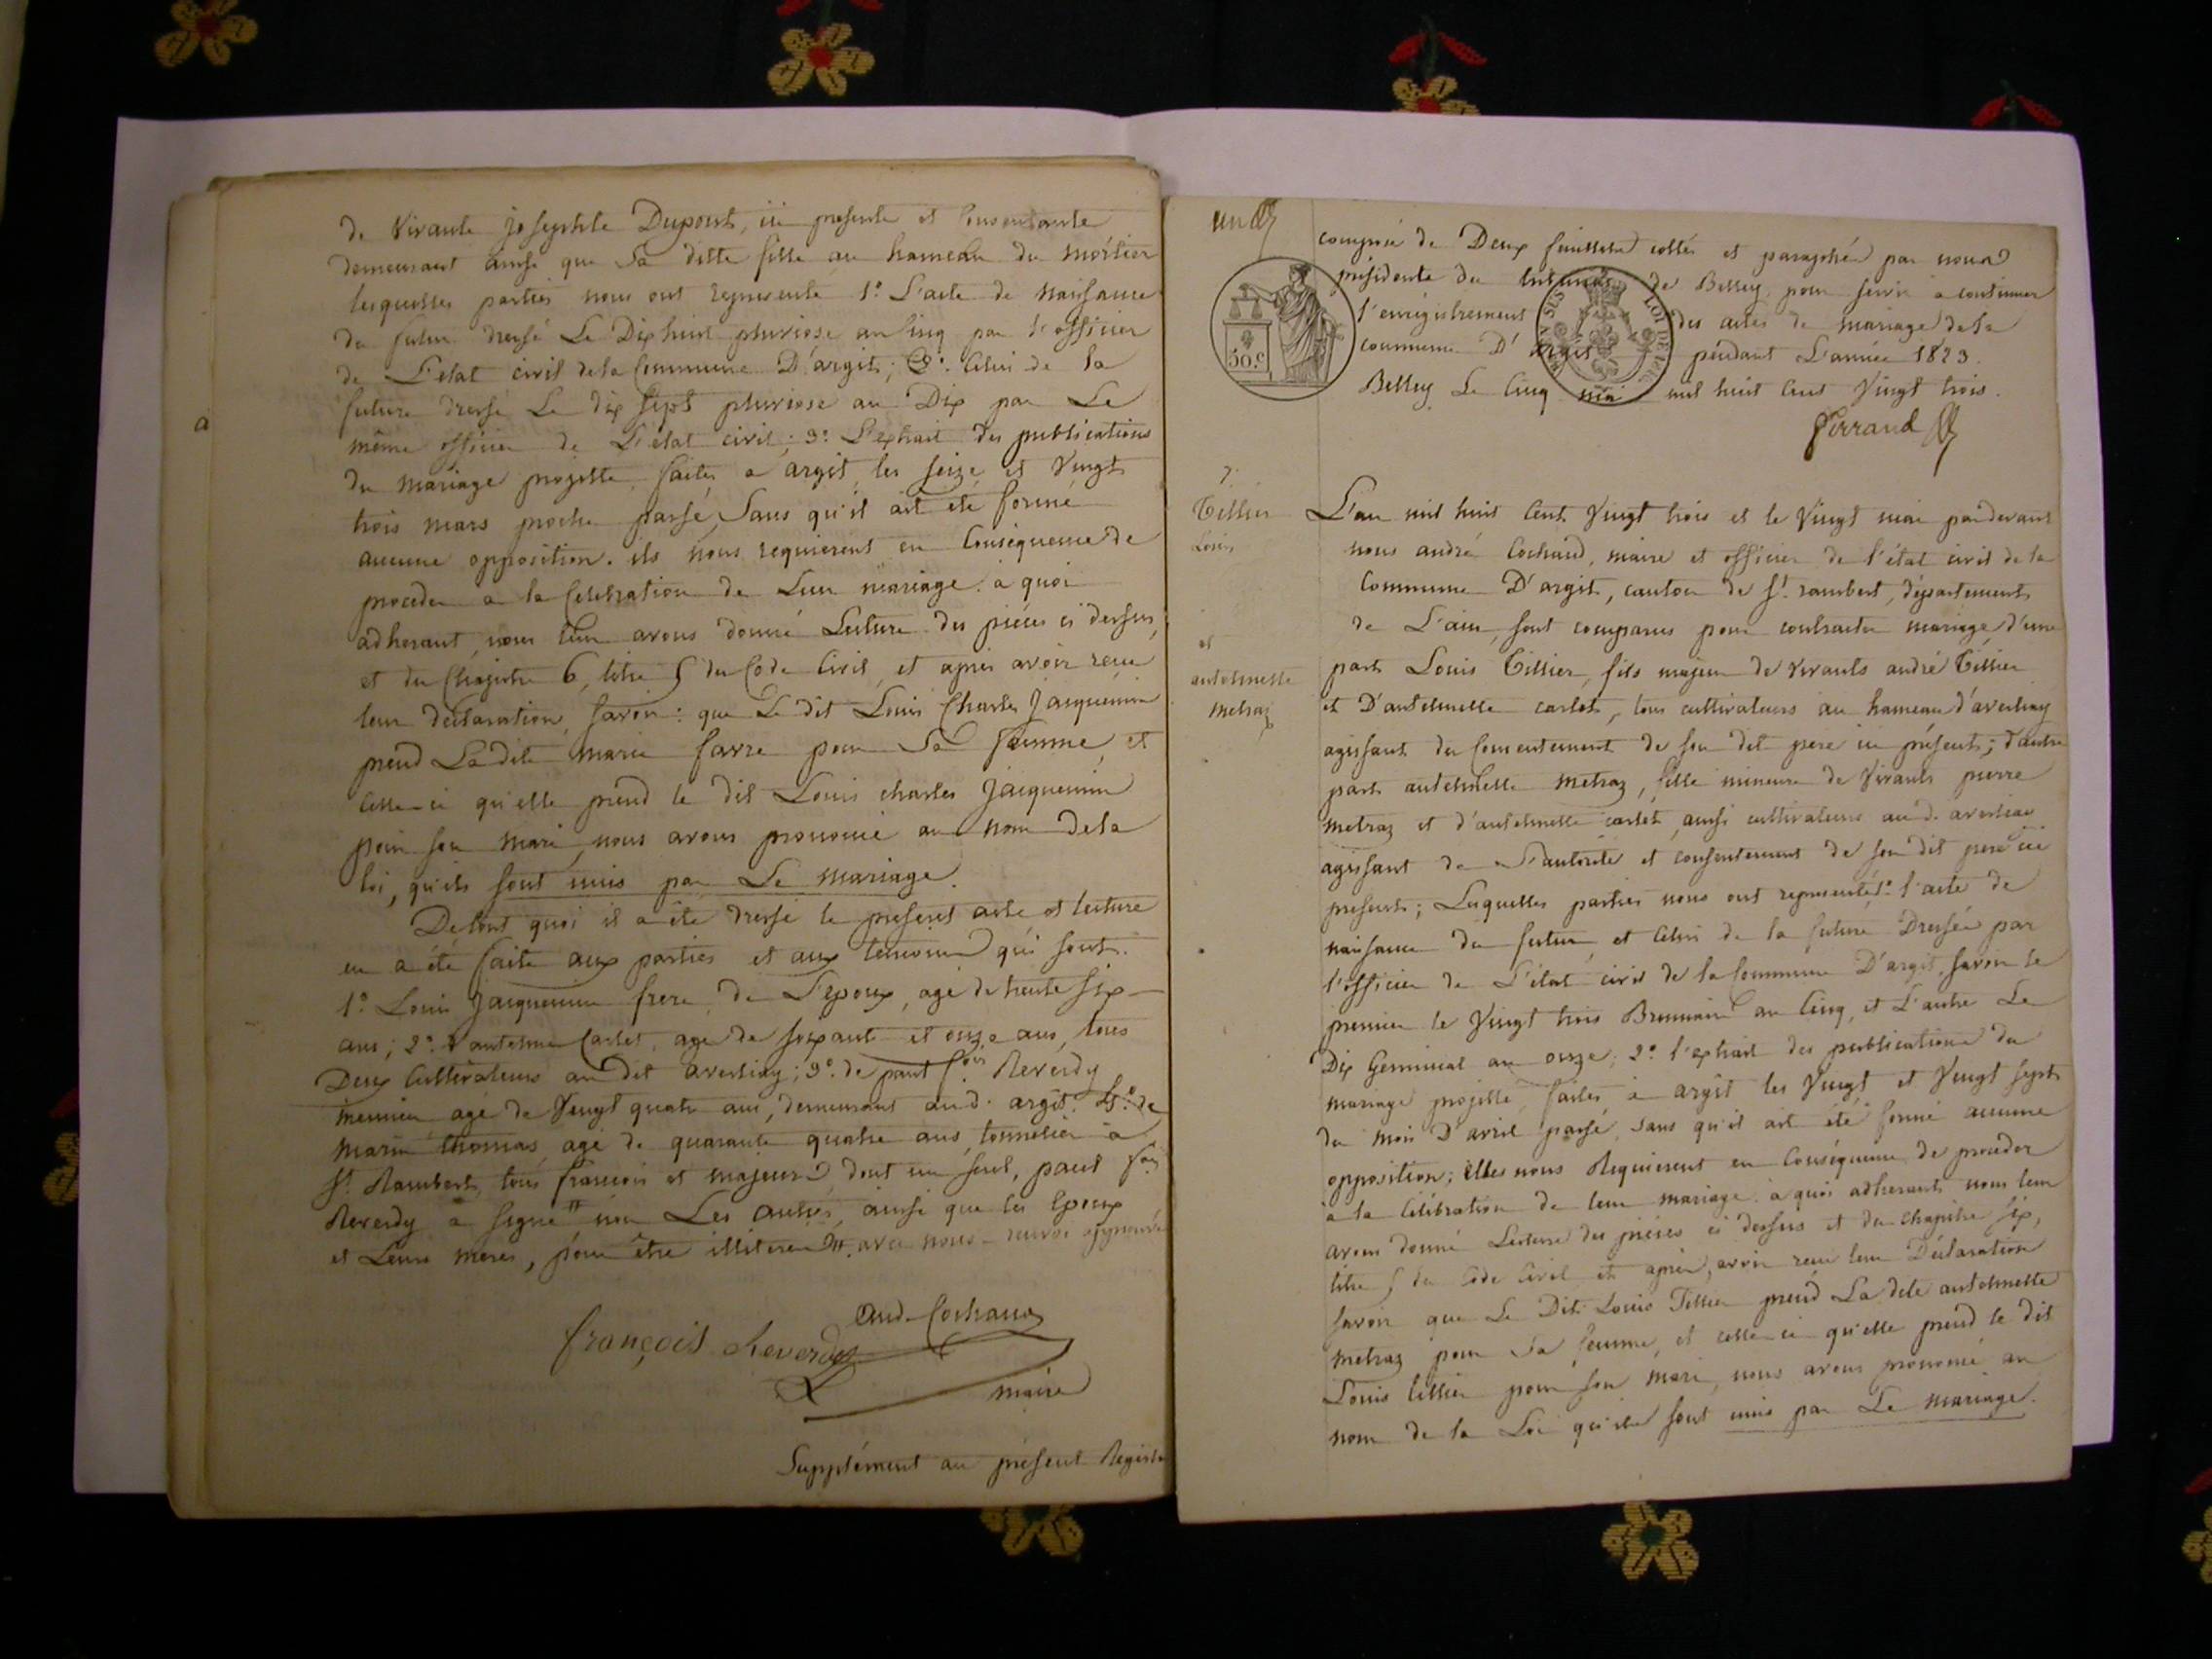 de vivante josephte Dupont, ici presente et consentante
demeurant ainsi que sa ditte fille au hameau du mortier
lesquelles parties nous ont representé 1° L'acte de naissance
du futur dressé Le Dix huit pluviose an cinq par l'officier
de L'etat civil de la Commune D'argit; 2° Celui de la
future dressé Le dix sept pluviose an Dix par Le
même officier de L'état civil; 3° L'extrait des publications
du mariage projetté, faites a argit les seize et vingt
trois mars proche passé, sans qu'il ait été formé
aucune opposition. ils nous requierent en Conséquence de
proceder a la Celebration de Leur mariage. à quoi
adherant, nous leur avons donné Lecture des pièces ci dessus,
et du Chapitre 6, titre 5 du Code Civil, et après avoir reçu
leur declaration, savoir: que Le dit Louis Charles Jacquemin
prend La dite marie favre pour Sa femme, et
Celle-ci qu'elle prend le dit Louis charles Jacquemin
pour son mari, nous avons prononcé au nom de la
loi, qu'ils sont unis par Le mariage.
De tout quoi il a été dressé le présent acte et lecture
en a été faite aux parties et aux temoins qui sont.
1° Louis Jacquemin frere de L'epoux, agé de trente six
ans; 2° anthelme Carlet, agé de soixante et onze ans, tous
Deux Cultivateurs au dit averliay; 3° de paul f.ois Reverdy
meunier agé de Vingt quatre ans, demeurant au d. argit. 4° de
marin thomas, agé de quarante quatre ans, tonnelier a
St. Rambert, tous françois et majeurs, dont un seul, paul f.ois
Reverdy a signé # non Les autres, ainsi que les Epoux
et Leurs meres, pour être illiterés #. avec nous - renvoi approuvé
And. Cochaud
françois Reverdy
maire
Supplément au présent Registre
a
un
composé de Deux feuillets cottés et paraphés par nous
présidente du tribunal de Belley, pour servir a continuer
l'enregistrement des actes de mariage de la
commune D'argit pendant L'année 1823.
Belley Le Cinq mai mil huit Cent Vingt trois.
Ferrand
50.c
LOI DE
7.
Tillier
Louis
et
anthelmette
metraz
L'an mil huit Cent Vingt trois et le Vingt mai pardevant
nous andré Cochaud, maire et officier de l'état civil de la
Commune D'argit, canton de St. rambert, département
de L'ain, sont comparus pour contracter mariage, d'une
part Louis Tillier, fils majeur de vivants andré Tillier
et D'anthelmette carlet, tous cultivateurs au hameau d'averliay
agissant du Consentement de son dit pere ici présent; d'autre
part anthelmette metraz, fille mineure de Vivants pierre
metraz et d'anthelmette carlet, aussi cultivateurs au d. averliay
agissant de L'autorité et consentement de son dit pere ici
present; Lesquelles parties nous ont representé 1° l'acte de
naissance du futur, et Celui de la future Dressés par
l'officier de L'état civil de la Commune D'argit, savoir le
premier le Vingt trois Brumaire an Cinq, et L'autre Le
Dix Germinal an onze; 2° l'extrait des publications du
mariage projetté, faites à argit les Vingt et Vingt sept
du mois D'avril passé, sans qu'il ait été formé aucune
opposition; Elles nous Requierent en Conséquence de proceder
à la Célébration de leur mariage. à quoi adherant nous leur
avons donné Lecture des pièces ci dessus et du chapitre six,
titre 5 du Code Civil et après, avoir reçu leur Déclaration
savoir que Le Dit Louis Tillier prend La dite anthelmette
metraz pour Sa femme, et celle ci qu'elle prend le dit
Louis tillier pour son mari, nous avons prononcé au
nom de la Loi qu'ils sont unis par Le mariage.